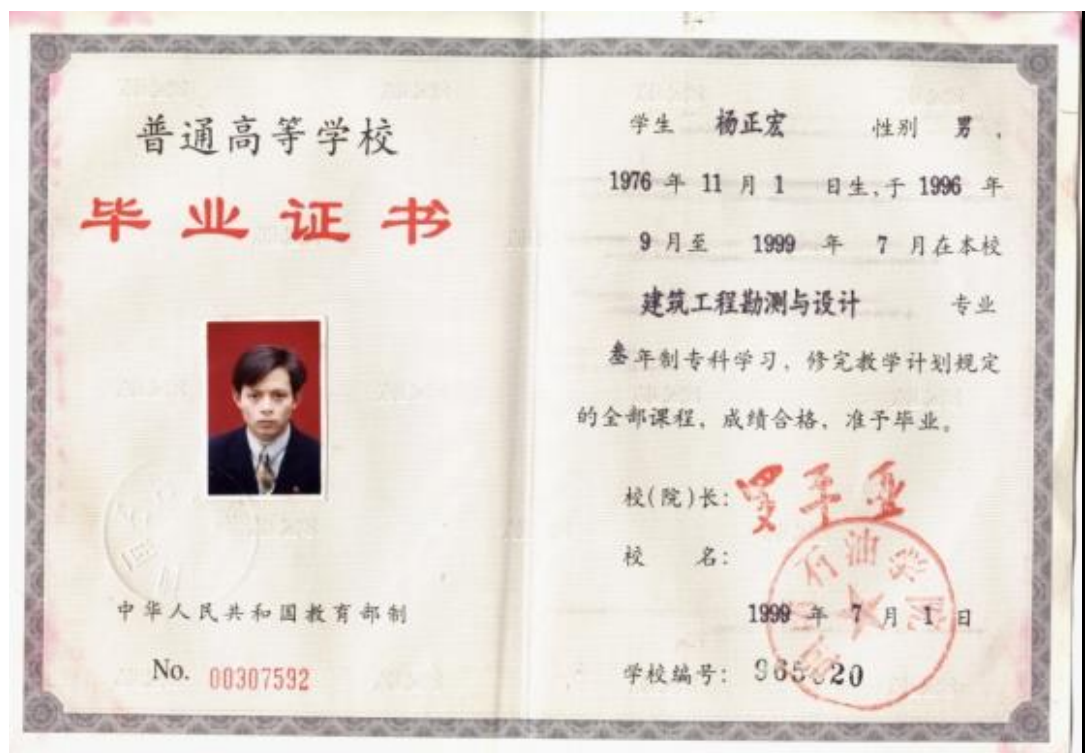 普通高等学校
毕业证书
中华人民共和国教育部制
No. 00307592
学生 杨正宏 性别 男,
1976 年 11 月 1 日生,于 1996 年
9 月至 1999 年 7 月在本校
建筑工程勘测与设计 专业
叁年制专科学习,修完教学计划规定
的全部课程,成绩合格,准予毕业。
校(院)长: 罗平亚
校 名:
石油学院
1999 年 7 月 1 日
学校编号: